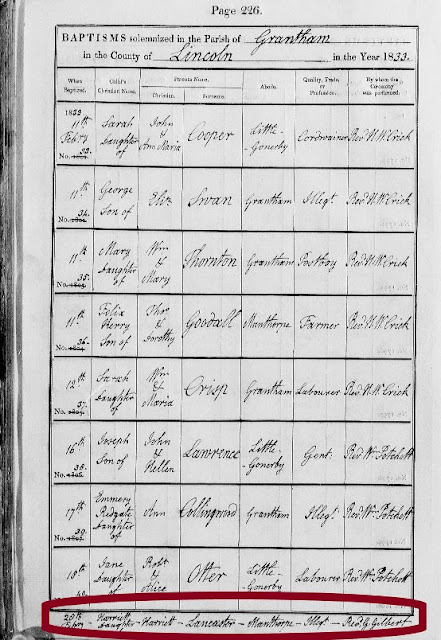 Page 226.
BAPTISMS solemnized in the Parish of Grantham
in the County of Lincoln in the Year 1833.
When Baptized. Child's Christian Name. Parents Name. Abode. Quality, Trade, or Profession. By whom the Ceremony was performed.
Christian. Surname.
1833
11th Sarah John Little-
Feb'ry Daughter & Cooper Gonerby Cordwainer Rev. W. W. Crick
33. of Ann Maria
No.
11th George
Son of Eliz Swan Grantham Illegt. Rev. W. W. Crick
34.
No.
11th Mary Wm
Daughter & Thornton Grantham Postboy Rev. W. W. Crick
35. of Mary
No.
11th Felix Thos
Henry & Goodall Manthorpe Farmer Rev. W. W. Crick
36. Son of Dorothy
No.
12th Sarah Wm
Daughter & Crisp Grantham Labourer Rev. W. W. Crick
37. of Maria
No.
16th Joseph John Little-
Son of & Lawrence Gonerby Gent. Rev. Wm Potchett
38. Hellen
No.
17th Emmery
Ridgate Ann Collingwood Grantham Illegt. Rev. Wm Potchett
39. Daughter of
No.
18th Jane Robt Little-
Daughter & Otter Gonerby Labourer Rev. Wm Potchett
40. of Alice
20th Harriett
Feb'ry Daughter Harriett Lancaster Manthorpe Illegt Rev. G. Gilbert